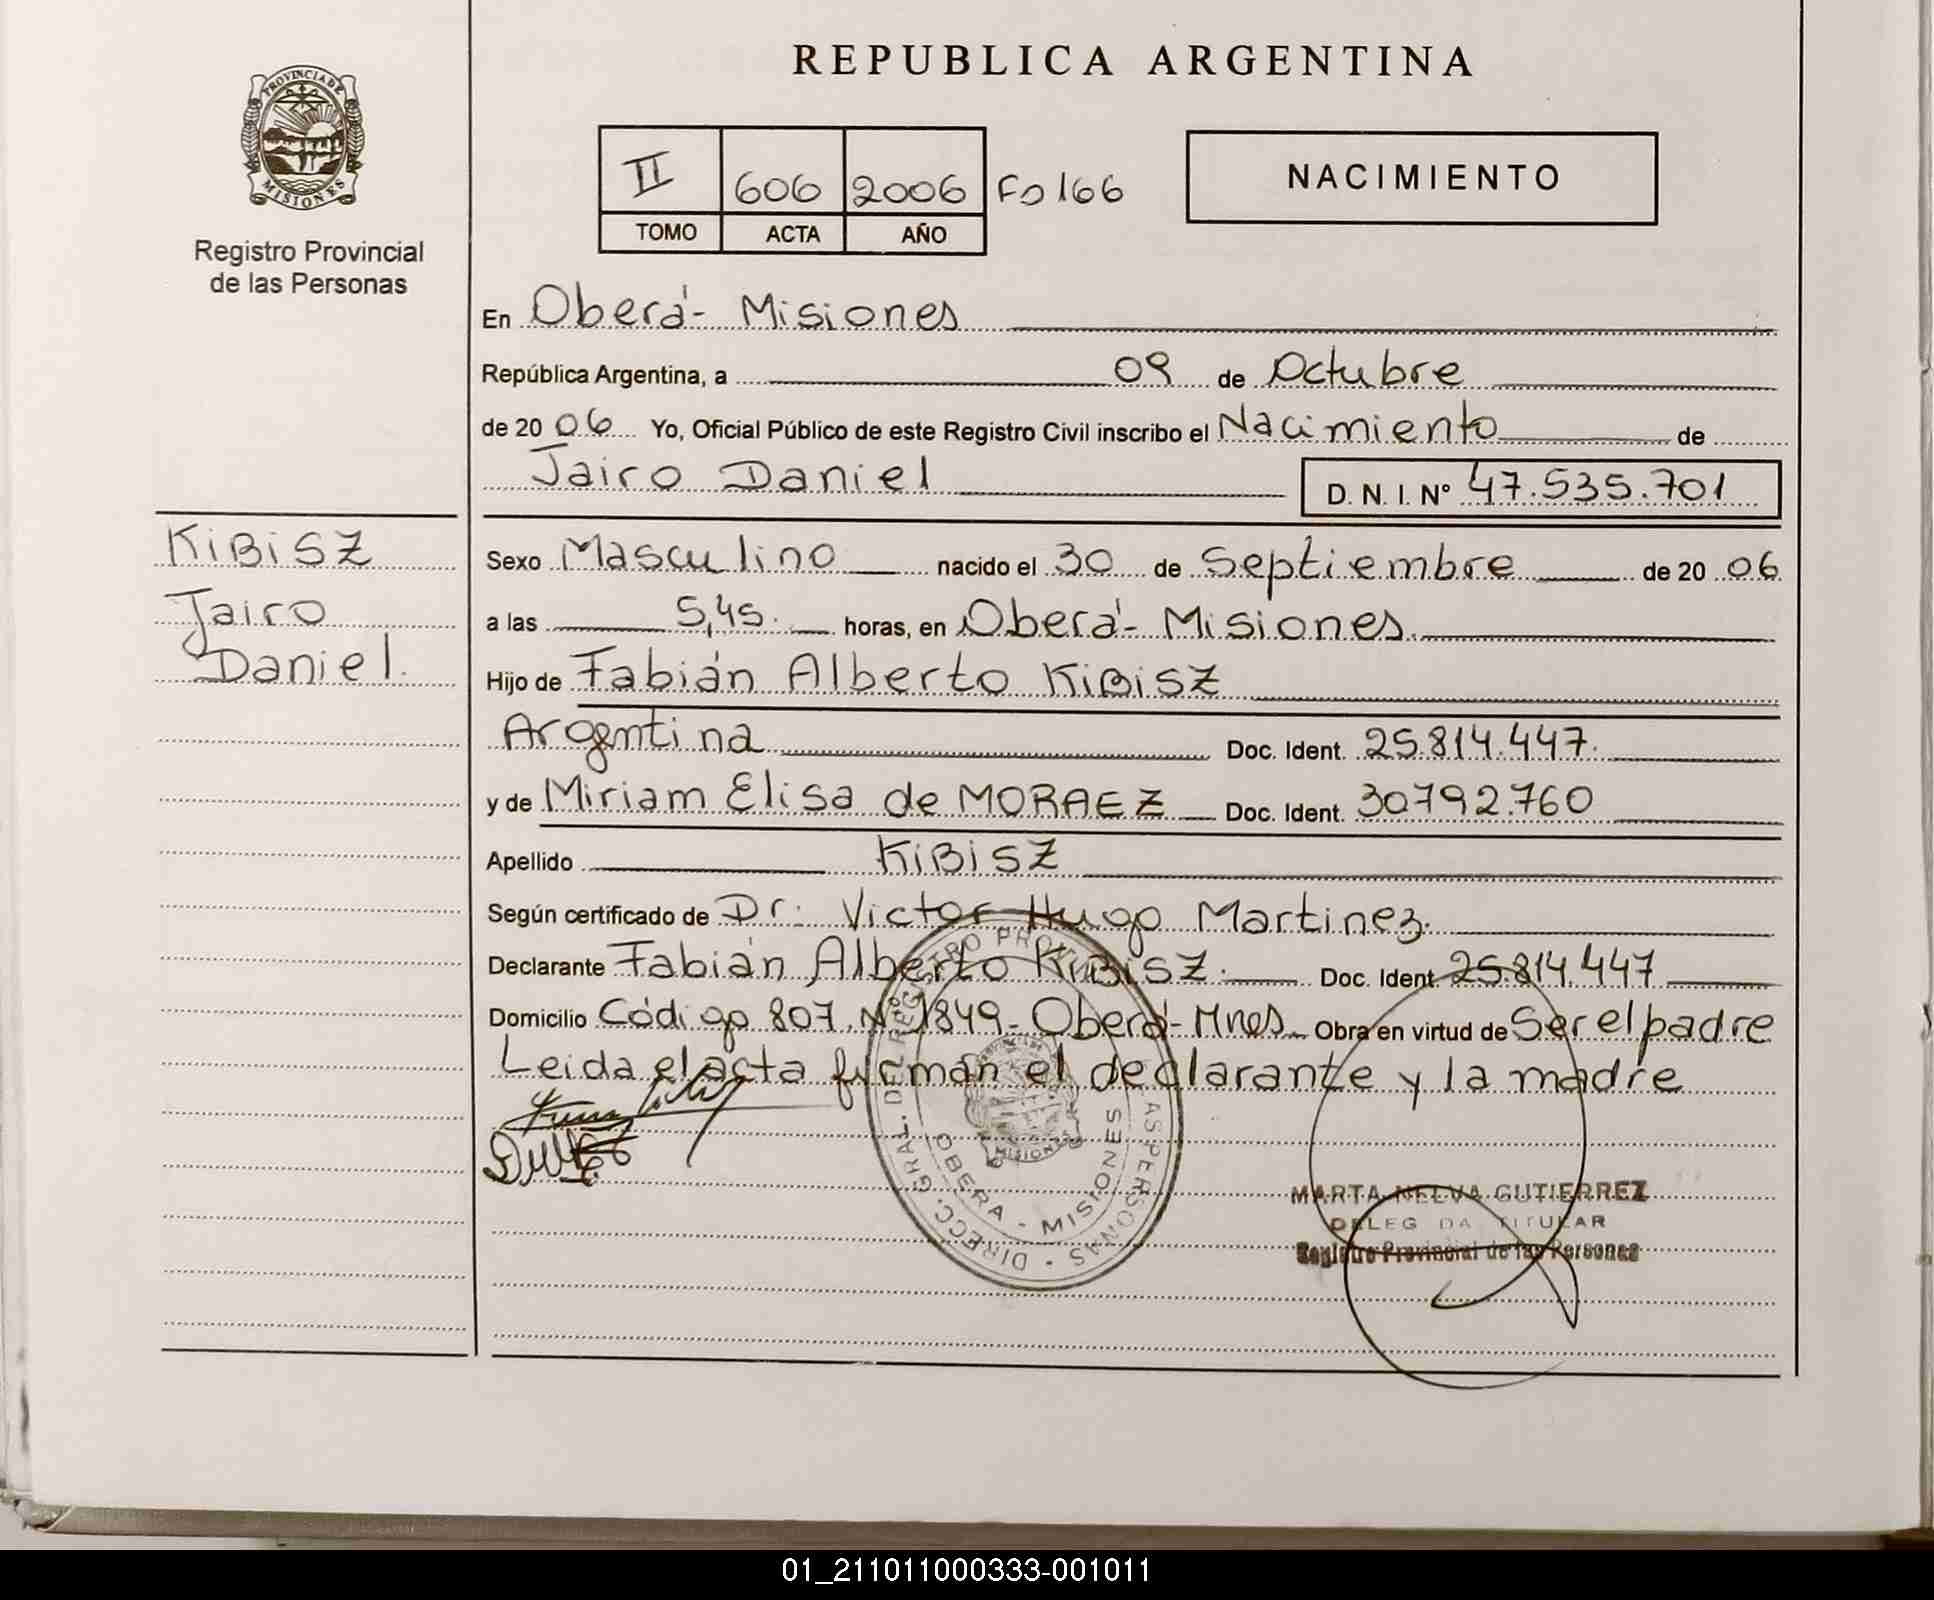 REPUBLICA ARGENTINA
PROVINCIA DE MISIONES
Registro Provincial
de las Personas
II 606 2006 Fo 166
TOMO ACTA AÑO
NACIMIENTO
En Oberá - Misiones
República Argentina, a 09 de Octubre
de 20 06 Yo, Oficial Público de este Registro Civil inscribo el Nacimiento de
Jairo Daniel D. N. I. Nº 47.535.701
KIBISZ
Jairo
Daniel.
Sexo Masculino nacido el 30 de Septiembre de 20 06
a las 5,45. horas, en Oberá - Misiones.
Hijo de Fabián Alberto KIBISZ
Argentina Doc. Ident. 25.814.447.
y de Miriam Elisa de MORAEZ Doc. Ident. 30792.760
Apellido KIBISZ
Según certificado de Dr. Victor Hugo Martinez.
Declarante Fabián Alberto KIBISZ. Doc. Ident. 25.814.447
Domicilio Código 807 Nº 1849 - Oberá - Mnes. Obra en virtud de Ser el padre
Leida el acta firman el declarante y la madre
DIRECC. GRAL. DEL REGISTRO PERSONAS
OBERA - MISIONES
MISIONES
MARTA NELVA GUTIERREZ
DELEGADA TITULAR
Registro Provincial de las Personas
01_211011000333-001011